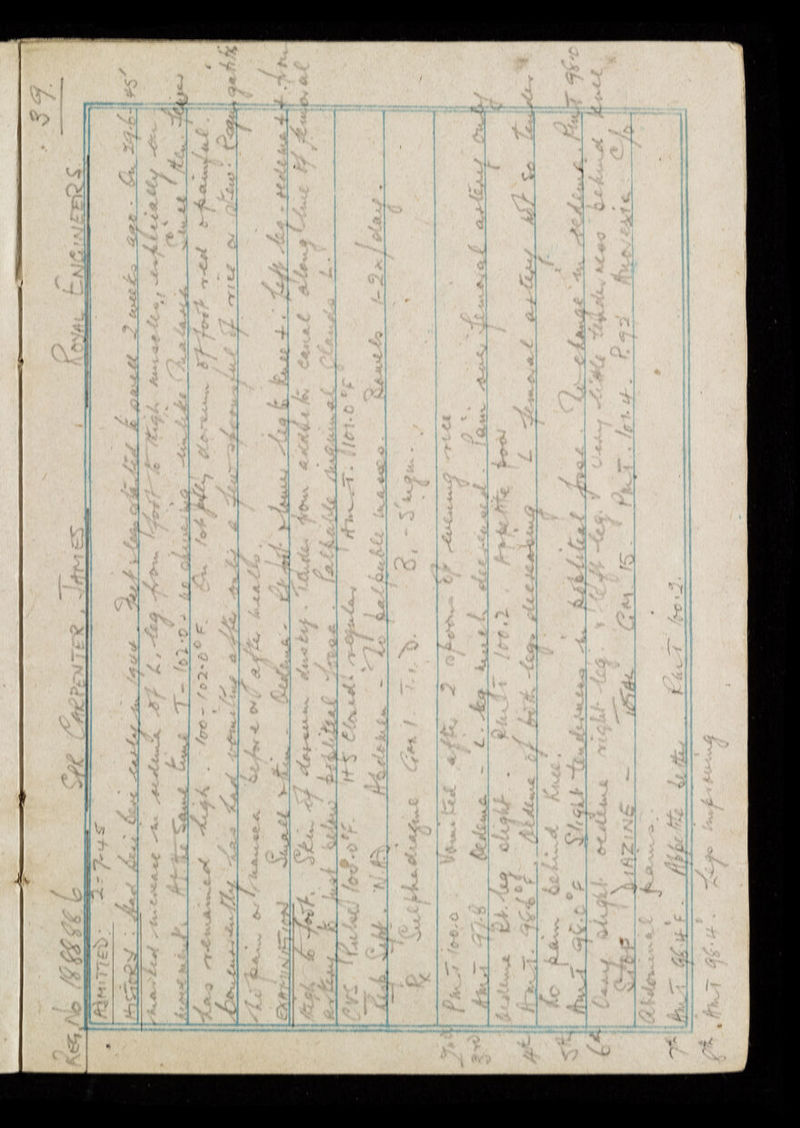 39.
REG. No 1888886 SPR CARPENTER, JAMES. ROYAL ENGINEERS
ADMITTED: 2-7-45
HISTORY: Had beri beri early in 1944. Feet & legs started to swell 2 weeks ago. On 29.6.45
marked increase in oedema of L. leg from foot to thigh muscles, especially on
movement. At the same time T-102.0. no shivering unlike Malaria. Since then fever
has remained high. 100-102.0°F. On 1st July dorsum of foot red & painful.
Concurrently has had vomiting after only a few spoonsful of rice or stew.
No pain or nausea before or after meals.
EXAMINATION Small & thin. Oedema - Rt foot & lower leg to knee +. Left leg - oedema ++ from
thigh to foot. Skin of dorsum dusky. Tender from adductor canal along line of femoral
artery to just below popliteal fossa. Palpable inguinal glands L.
CVS Pulse 108. HS closed: regular AmT. 101.0°F
Resp Syst. NAD Abdomen - No palpable masses. Bowels 1-2x/day.
Rx Sulphadiazine Gm 1. T.I.D. B1 - 5 mgm.
2nd PmT 100.0 Vomited after 2 spoons of evening rice
3rd AmT 97.8 Oedema - L. leg much decreased. Pain over femoral artery only
Oedema Rt. leg slight. PmT 100.2. Appetite poor
4th AmT 98.6°F Oedema of both legs decreasing L femoral artery not so tender
No pain behind knee.
5th AmT 98.0°F Slight tenderness in popliteal fossa. No change in oedema. PmT 98.0
6th Very slight oedema right leg. & left leg. Very little tenderness behind knee
STOP DIAZINE - TOTAL Gm 15. PmT. 101.4. P. 92 Anorexia. C/o
Abdominal pains.
7th AmT 98.4°F. Appetite better. PmT 100.2.
8th AmT 98.4°. Legs improving